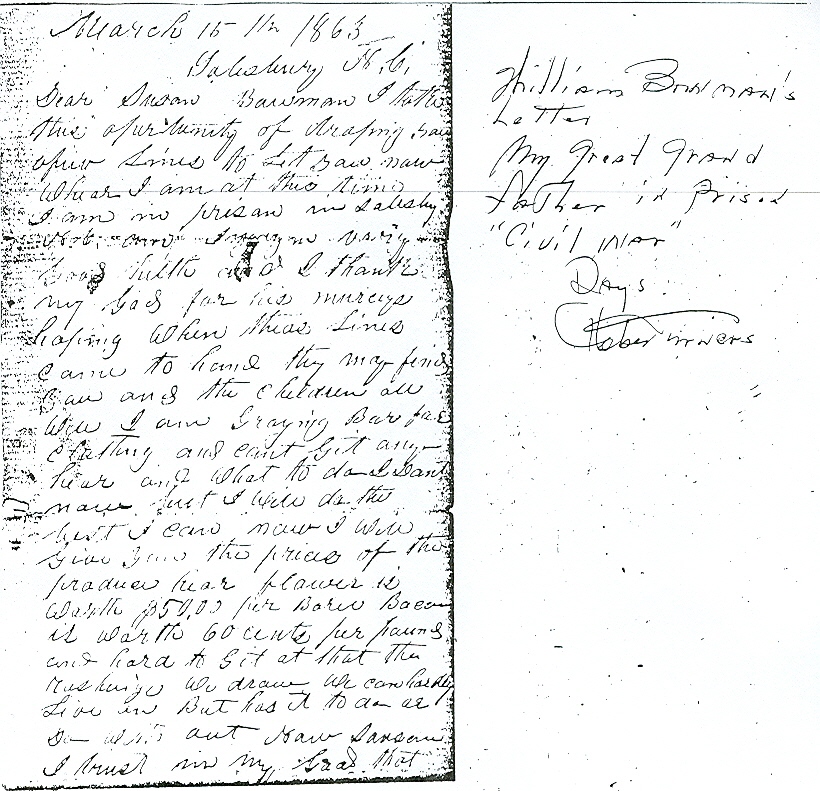 March 15 th 1863
Salesbury N. C.
Dear Susan Bawman I take
this opurtunity of draping yau
afuw Lines to Let yau now
Whear I am at this time
I am in prisan in Salesby
N. C. and I injoyin varry
good hilth and I thank
my God far his murcys
hoping When theas Lines
Came to hand thy may find
yau and the Children all
Well I am Graying Bar far
Clothing and cant Git any
hear and What to do I Dant
now but I Will do the
best I can now I Will
Give you the prices of the
produce hear flawer is
Warth $50.00 per Barel Bacon
is Warth 60 cents per paund
and hard to Git at that the
We draw We can hardly
Live on But has it to do ar
Do With out Now
I trust in my God that
William Bowman's
Letter
My Great Grand
Father in Prison
"Civil War"
Days